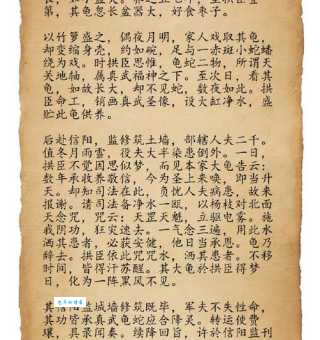 第，其龟忽长盆器大，好食枣子。
以竹箩盛之，偶夜月明，家人戏取其龟，
却变缩身壳，约如碗，足与一赤斑小蛇蟠
绕为戏。时拱臣思惟，龟蛇二物，所谓天
关地轴，属真武福神之下。至次日，看其
龟，如故长大，却不见蛇，数夜如此。拱
臣命工，销画真武圣像，设大缸净水，盛
贮此龟供养。
后赴信阳，监修筑土墙，部辖人夫二千。
值冬月雨雪，役夫大半染患倒外。一日，
拱臣不觉困思似梦，而见本家大龟告云：
数年承收养敬信，今为圣上来唤，即当升
天。却知司法在此，负忧人夫病患，故来
报谢。请司法备净水一瓯，以杨枝对北面
天念咒，咒云：天罡天魁，立驱屯雾。施
我阴功，狂灾速去。一气念三遍，用此水
洒其患者，必获安健，他日当承恩。龟乃
辞去。拱臣依此咒咒水，洒其患者。不移
时间，皆得汗苏醒。其大龟于拱臣得梦
日，化为一阵黑风不见。
其信阳监城墙修筑既毕，军夫不失性命，
其功皆承真武龟蛇应合降灵。转运使费
瓌，具录闻奏。续降回旨，许于信阳监刊